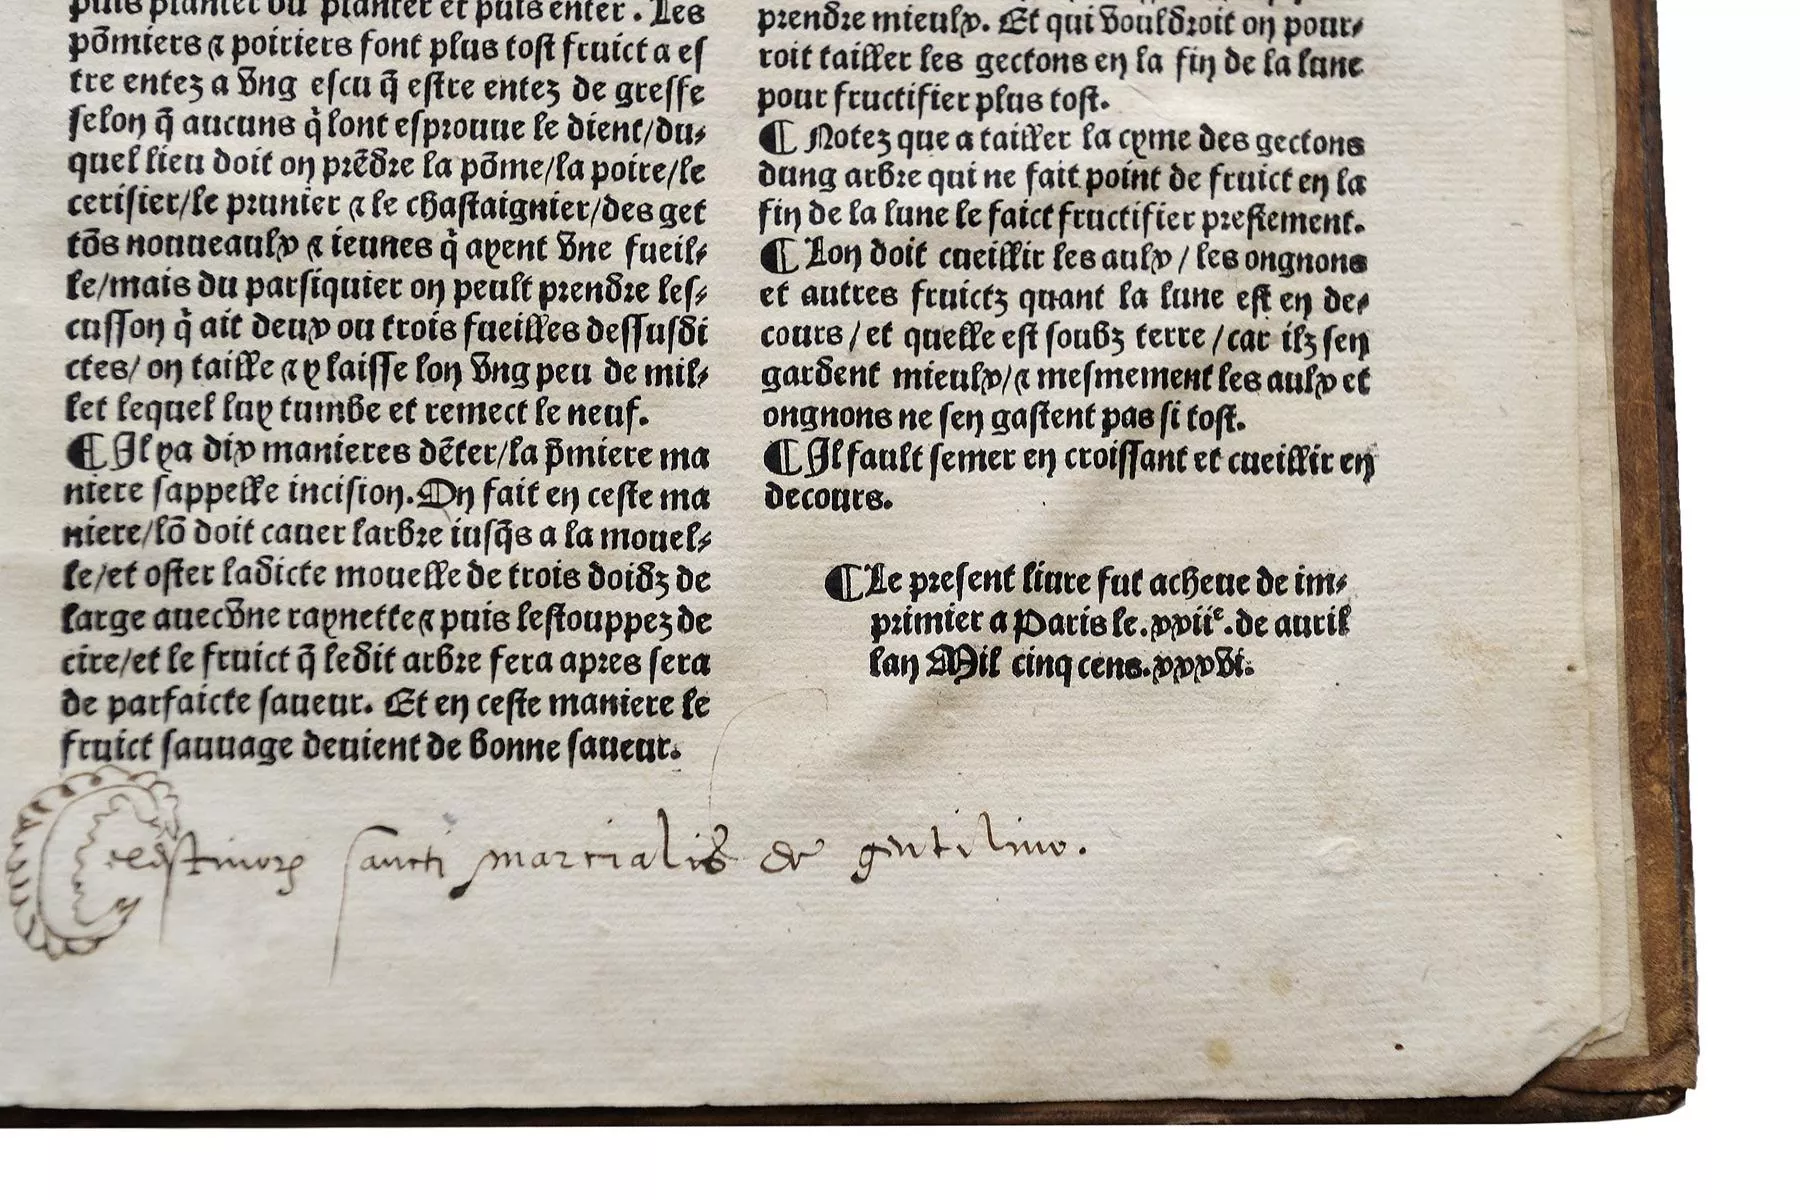 puis planter ou planter et puis enter. Les
põmiers ⁊ poiriers font plus tost fruict a es
tre entez a vng escu q̃ estre entez de greffe
selon q̃ aucuns q̇ lont esprouue le dient/du⸗
quel lieu doit on prẽdre la põme/la poire/le
cerisier/le prunier ⁊ le chastaignier/des get
tõs nouueaulx ⁊ ieunes q̇ ayent vne fueil⸗
le/mais du parsiquier on peult prendre les⸗
cusson q̇ ait deux ou trois fueilles dessusdi
ctes/ on taille ⁊ y laisse lon vng peu de mil⸗
let lequel luy tumbe et remect le neuf.
¶ Il ya dix manieres dẽter/la p̃miere ma
niere sappelle incision. On fait en ceste ma
niere/lõ doit cauer larbre iusq̃s a la mouel⸗
le/et oster ladicte mouelle de trois doidz de
large auec vne raynette ⁊ puis lestouppez de
cire/et le fruict q̃ ledit arbre fera apres sera
de parfaicte saueur. Et en ceste maniere le
fruict sauuage deuient de bonne saueur.
prendre mieulx. Et qui vouldroit on pour⸗
roit tailler les gectons en la fin de la lune
pour fructifier plus tost.
¶ Notez que a tailler la cyme des gectons
dung arbre qui ne fait point de fruict en la
fin de la lune le faict fructifier prestement.
¶ Lon doit cueillir les aulx / les ongnons
et autres fruictz quant la lune est en de⸗
cours / et quelle est soubz terre / car ilz sen
gardent mieulx/⁊ mesmement les aulx et
ongnons ne sen gastent pas si tost.
¶ Il fault semer en croissant et cueillir en
decours.
¶ Le present liure fut acheue de im⸗
primier a Paris le .xxiiᵉ. de auril
lan Mil cinq cens .xxxvi.
Celestinorꝝ sancti martialis de gentilino.